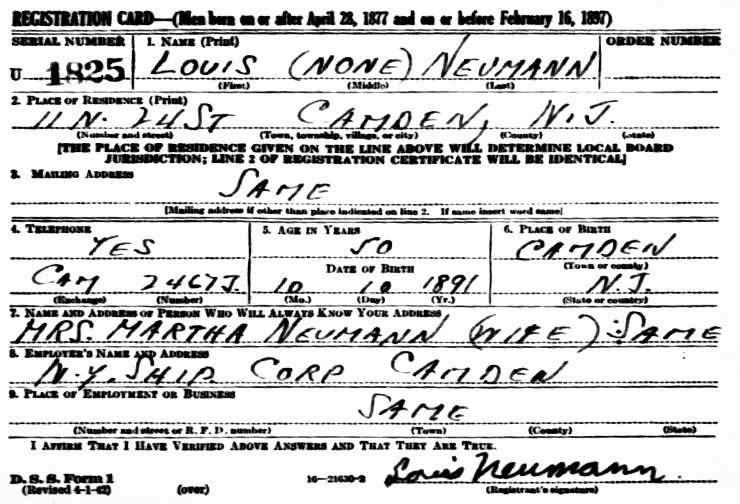 REGISTRATION CARD—(Men born on or after April 28, 1877 and on or before February 16, 1897)
SERIAL NUMBER 1. NAME (Print) ORDER NUMBER
U 1825 LOUIS (NONE) NEUMANN
(First) (Middle) (Last)
2. PLACE OF RESIDENCE (Print)
11 N. 24 ST CAMDEN, N.J.
(Number and street) (Town, township, village, or city) (County) (State)
[THE PLACE OF RESIDENCE GIVEN ON THE LINE ABOVE WILL DETERMINE LOCAL BOARD
JURISDICTION; LINE 2 OF REGISTRATION CERTIFICATE WILL BE IDENTICAL]
3. MAILING ADDRESS
SAME
[Mailing address if other than place indicated on line 2. If same insert word same]
4. TELEPHONE 5. AGE IN YEARS 6. PLACE OF BIRTH
YES 50 CAMDEN
DATE OF BIRTH (Town or county)
CAM 2467J. 10 10 1891 N.J.
(Exchange) (Number) (Mo.) (Day) (Yr.) (State or country)
7. NAME AND ADDRESS OF PERSON WHO WILL ALWAYS KNOW YOUR ADDRESS
MRS. MARTHA NEUMANN (WIFE) : SAME
8. EMPLOYER'S NAME AND ADDRESS
N.Y. SHIP. CORP CAMDEN
9. PLACE OF EMPLOYMENT OR BUSINESS
SAME
(Number and street or R. F. D. number) (Town) (County) (State)
I AFFIRM THAT I HAVE VERIFIED ABOVE ANSWERS AND THAT THEY ARE TRUE.
D. S. S. Form 1 Louis Neumann.
(Revised 4-1-42) (over) 16—21630-2 (Registrant's signature)